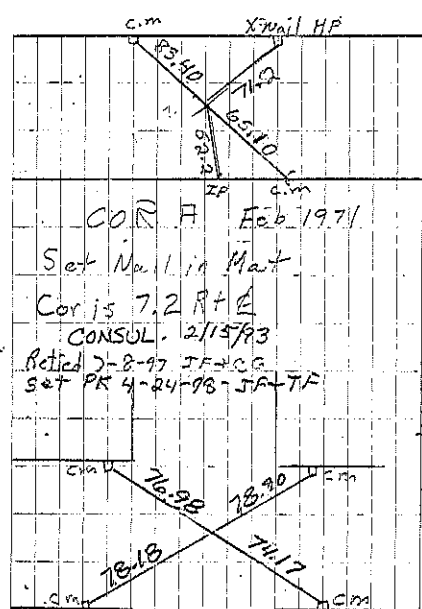 c.m
X-nail HP
83.40
71.2
65.10
62.2
IP
c.m
COR A Feb 1971
Set Nail in Mat
Cor is 7.2 Rt E
CONSUL. 2/15/93
Retied 7-8-97 JF+CG
set PK 4-24-98-JF+TF
c.m
c.m
76.98
78.80
78.18
74.17
c.m
c.m